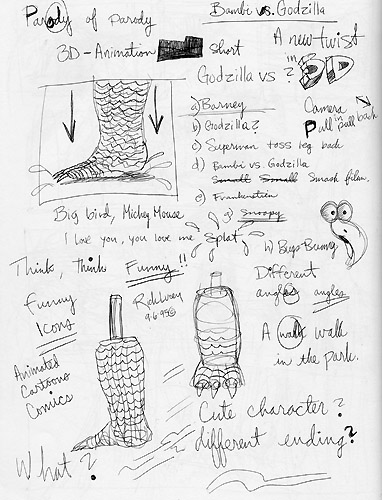 Parody of Parody
Bambi vs. Godzilla
3D-Animation Short
A new twist
in 3D
Godzilla vs ?
a) Barney
b) Godzilla?
c) Superman toss leg back
d) Bambi vs. Godzilla
Small Small Smash film.
e) Frankenstein
g) Snoopy
h) Bugs Bunny
Camera
Pull in pull back
Big bird, Mickey Mouse
I love you, you love me
Splat
Think, Think Funny!!
Different
angles angles
Funny
Icons
9-6-95
A walk walk
in the park.
Animated
Cartoons
Comics
Cute character?
different ending?
What?